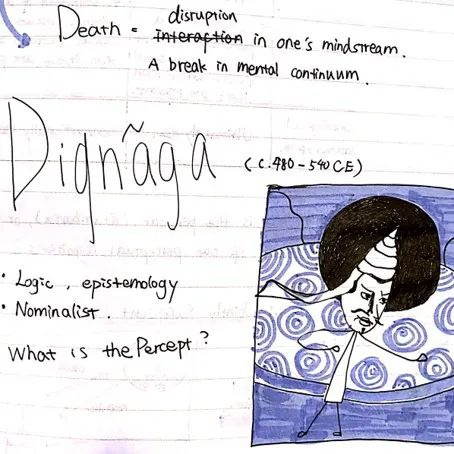 disruption
Death = Interaction in one's mindstream.
A break in mental continuum.
Dignãga
(c.480 - 540 CE)
• Logic, epistemology
• Nominalist.
What is the Percept?